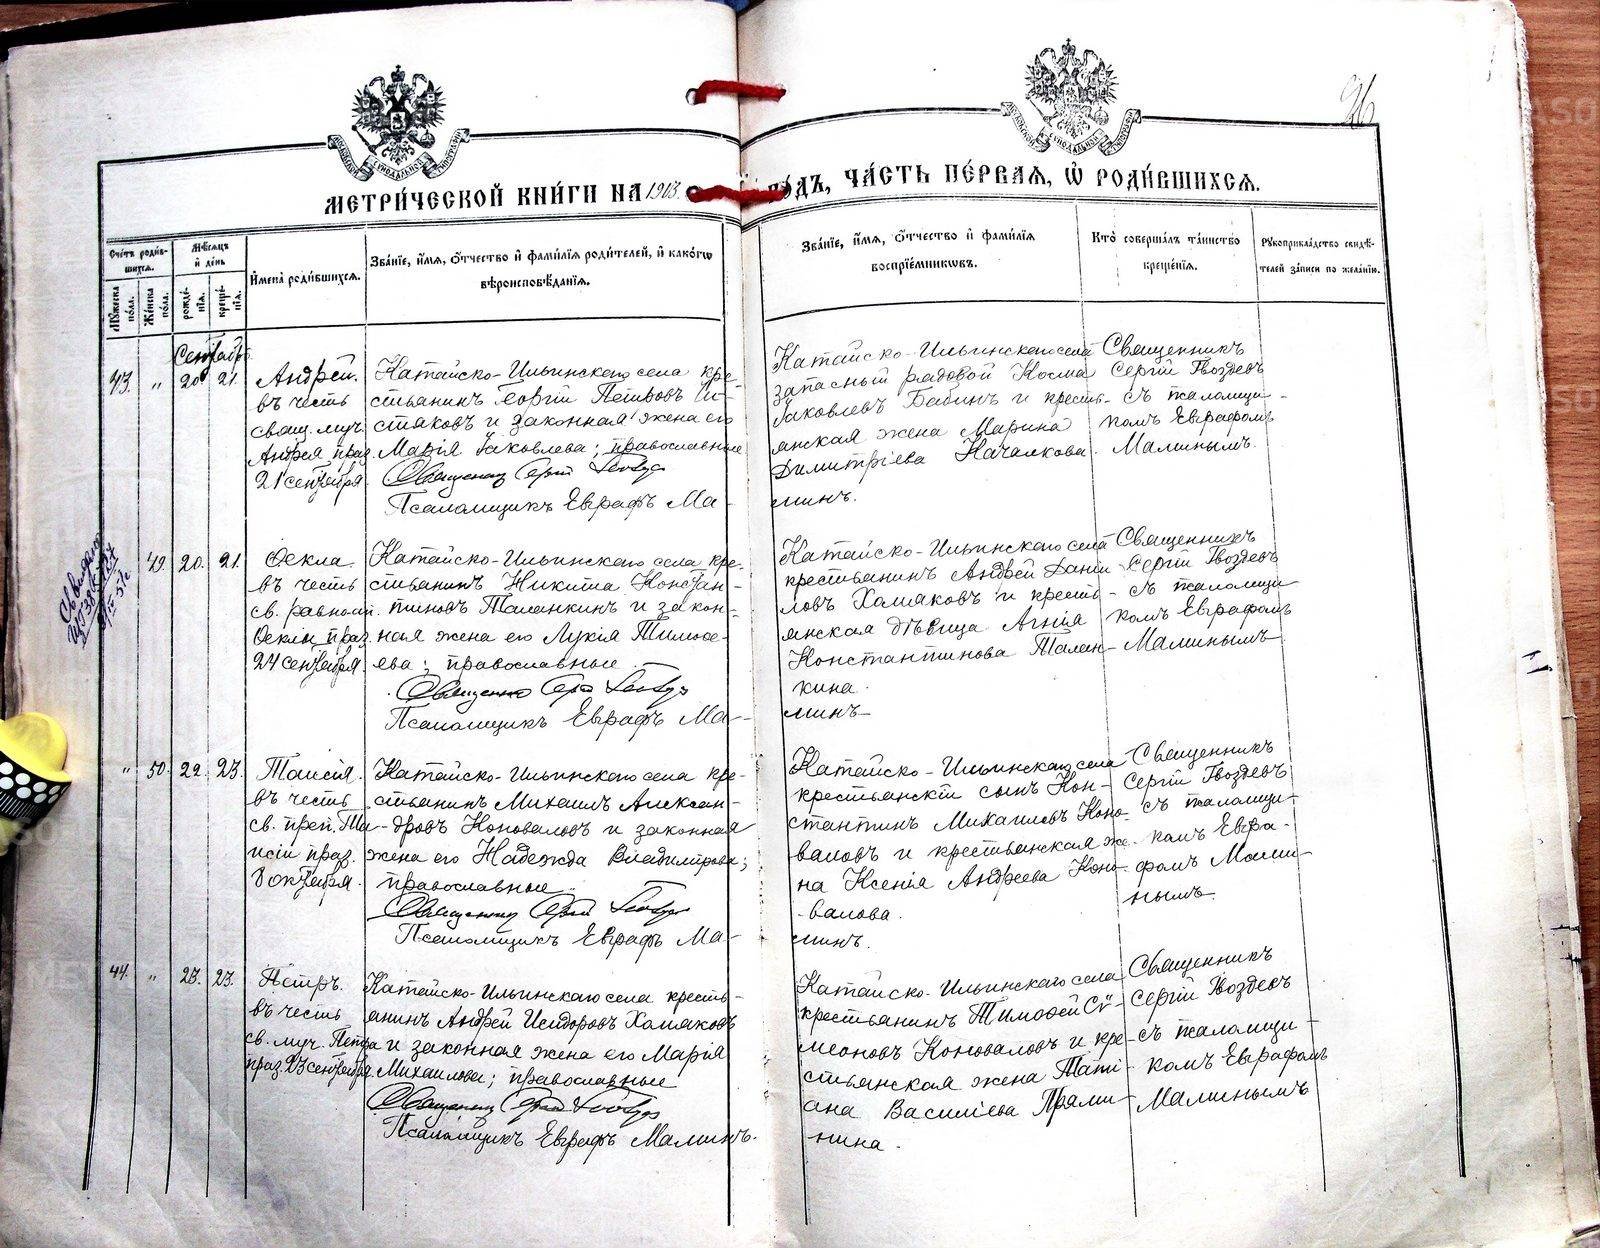 26
МОСКОВСКОЙ СѴНОДАЛЬНОЙ ТИПОГРАФІИ
МОСКОВСКОЙ СѴНОДАЛЬНОЙ ТИПОГРАФІИ
МЕТРИ́ЧЕСКОЙ КНИ́ГИ НА 1913 ГО́ДЪ, ЧА́СТЬ ПЕ́РВАЯ, Ѡ҆ РОДИ́ВШИХСЯ.
Сче́тъ роди́в-
шихся.
Му́жеска
по́ла.
Же́нска
по́ла.
Мѣ́сяцъ
и҆ де́нь
рожде́-
нїя.
креще́-
нїя.
И҆мена̀ роди́вшихся.
Зва́нїе, и҆́мя, ѻ҆́тчество и҆ фами́лїя роди́телей, и҆ како́гѡ
вѣроисповѣ́данїя.
Зва́нїе, и҆́мя, ѻ҆́тчество и҆ фами́лїя
воспрїе́мниковъ.
Кто̀ соверша́лъ та́инство
креще́нїя.
Рꙋкоприкла́дство свидѣ́-
телей за́писи по жела́нїю.
Сентябрь
43. " 20 21.
Андрей.
въ честь
свящ. муч.
Андрея праз.
21 сентября
Катайско-Ильинскаго села кре-
стьянинъ Георгій Петровъ
и законная жена его
Марія Іаковлева; православные
Священник Сергій Гвоздев
Псаломщикъ Евграфъ Ма-
Катайско-Ильинскаго села
запасный рядовой Косма
Іаковлевъ Бабинъ и кресть-
янская жена Марина
Димитріева Качалкова.
минъ.
Священникъ
Сергій Гвоздевъ
съ псаломщи-
комъ Евграфомъ
Малинымъ.
49. 20. 21.
Ѳекла
въ честь
св. равноап.
Ѳеклы праз.
24 сентября
Катайско-Ильинскаго села кре-
стьянинъ Никита Констан-
тиновъ Таланкинъ и закон-
ная жена его Лукія Тимоѳе-
ева; православные
Священник Сергій Гвоздев
Псаломщикъ Евграфъ Ма-
Катайско-Ильинскаго села
крестьянинъ Андрей Дани-
ловъ Хомяковъ и кресть-
янская дѣвица Агнія
Константинова Талан-
кина.
минъ
Священникъ
Сергій Гвоздевъ
съ псаломщи-
комъ Евграфомъ
Малинымъ
" 50. 22. 23.
Таисія.
въ честь
св. преп. Та-
исіи праз.
8 октября.
Катайско-Ильинскаго села кре-
стьянинъ Михаилъ Алексан-
дровъ Коноваловъ и законная
жена его Надежда Владимірова;
православные.
Священник Сергій Гвоздев
Псаломщикъ Евграфъ Ма-
Катайско-Ильинскаго села
крестьянскій сынъ Кон-
стантинъ Михаиловъ Коно-
валовъ и крестьянская же-
на Ксенія Андреева Коно-
валова.
минъ.
Священникъ
Сергій Гвоздевъ
съ псаломщи-
комъ Евгра-
фомъ Мали-
нымъ
44. " 23. 23.
Петръ.
въ честь
св. муч. Петра
праз. 23 сентября
Катайско-Ильинскаго села кресть-
янинъ Андрей Исидоровъ Хомяковъ
и законная жена его Марія
Михаилова; православные
Священник Сергій Гвоздев
Псаломщикъ Евграфъ Малинъ.
Катайско-Ильинскаго села
крестьянинъ Тимоѳей Си-
меоновъ Коноваловъ и кре-
стьянская жена Тати-
ана Василіева Прями-
нина.
Священникъ
Сергій Гвоздевъ
съ псаломщи-
комъ Евграфомъ
Малинымъ